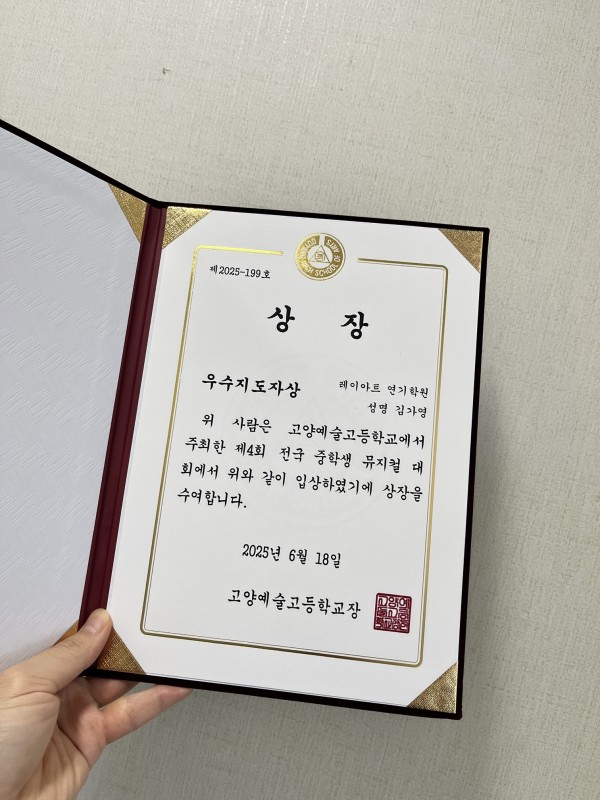 제2025-199호
상 장
우수지도자상
레이아트 연기학원
성명 김가영
위 사람은 고양예술고등학교에서
주최한 제4회 전국 중학생 뮤지컬 대
회에서 위와 같이 입상하였기에 상장을
수여합니다.
2025년 6월 18일
고양예술고등학교장